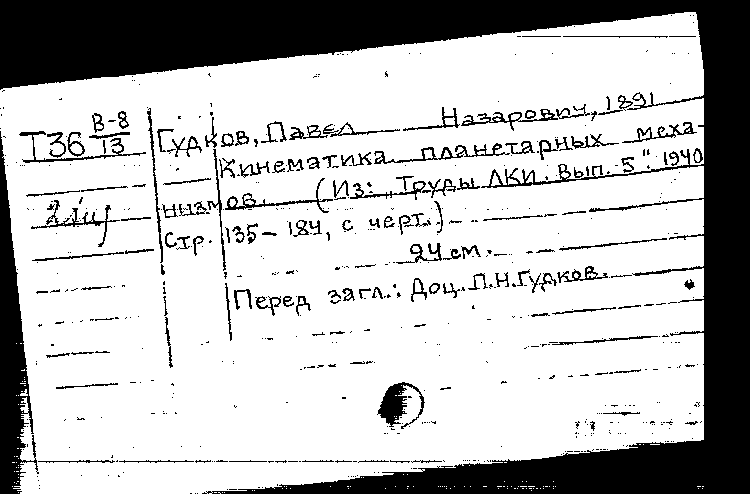 Т36 В-8/13
Гудков, Павел Назарович, 1891
Кинематика планетарных меха-
низмов. (Из: „Труды ЛКИ. Вып. 5". 1940
Стр. 135-184, с черт.)
24 см.
Перед загл.: Доц. П.Н.Гудков.